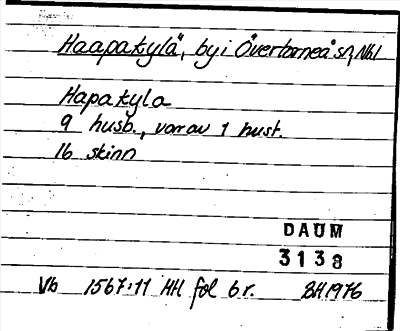 Haapakylä, by i Övertorneå sn, Nbl
Hapakyla
9 husb., varav 1 hust.
16 skinn
DAUM
3138
Vb 1567:11 HH fol 6 r. BH 1976